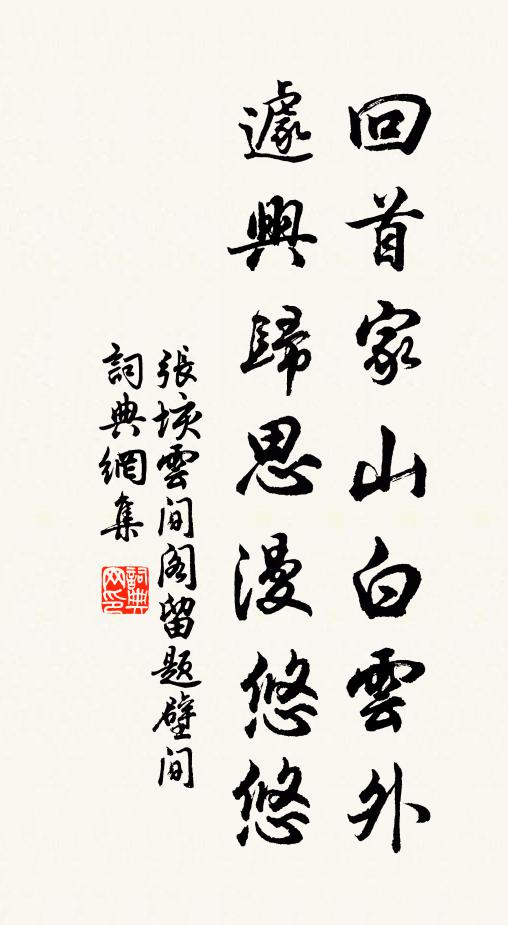 回首家山白雲外
遽興歸思漫悠悠
張垓雲間閣留題壁间
詞典網集
詞典网印